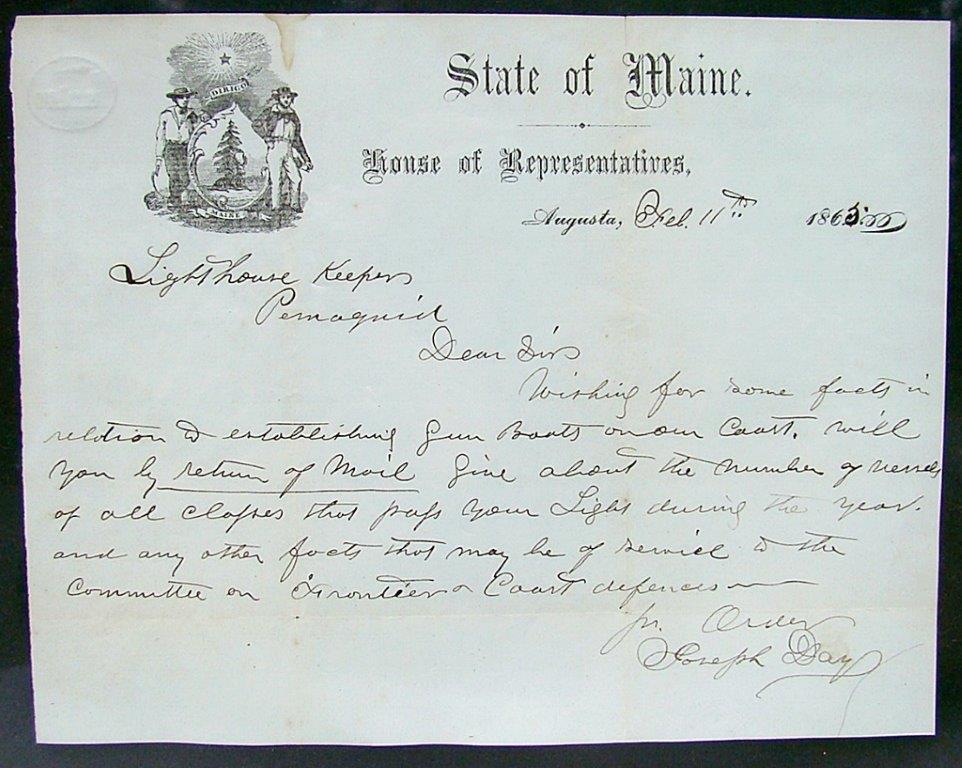 DIRIGO
MAINE
State of Maine.
House of Representatives,
Augusta, Feb. 11th 1865
Lighthouse Keeper
Pemaquid
Dear Sir
Wishing for some facts in
relation to establishing Gun Boats on our Coast. will
you by return of Mail Give about the number of vessels
of all classes that pass your Light during the year.
and any other facts that may be of service to the
Committee on Frontier & Coast defences
pr. Order
Joseph Day